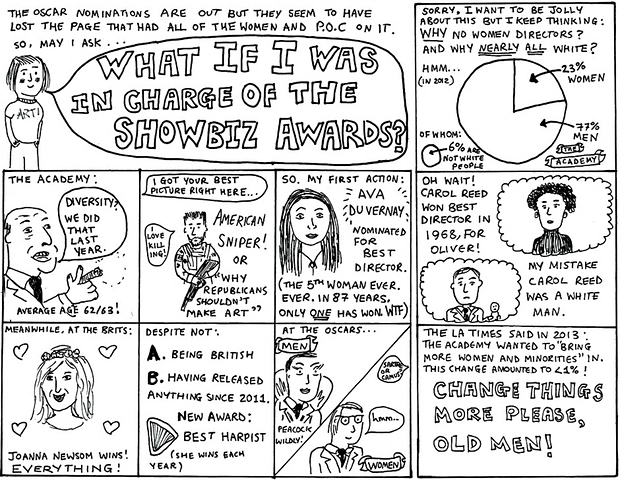 THE OSCAR NOMINATIONS ARE OUT BUT THEY SEEM TO HAVE
LOST THE PAGE THAT HAD ALL OF THE WOMEN AND P.O.C ON IT.
SO, MAY I ASK...
ART!
WHAT IF I WAS
IN CHARGE OF THE
SHOWBIZ AWARDS?
SORRY, I WANT TO BE JOLLY
ABOUT THIS BUT I KEEP THINKING:
WHY NO WOMEN DIRECTORS?
AND WHY NEARLY ALL WHITE?
HMM...
(IN 2012)
23%
WOMEN
77%
MEN
OF WHOM:
6% ARE
NOT WHITE
PEOPLE
THE
ACADEMY
THE ACADEMY:
DIVERSITY?
WE DID
THAT
LAST
YEAR.
AVERAGE AGE 62/63!
I GOT YOUR BEST
PICTURE RIGHT HERE...
I
LOVE
KILL
ING!
AMERICAN
SNIPER!
OR
"WHY
REPUBLICANS
SHOULDN'T
MAKE ART"
SO, MY FIRST ACTION:
AVA
DUVERNAY
NOMINATED
FOR
BEST
DIRECTOR.
(THE 5TH WOMAN EVER.
EVER. IN 87 YEARS,
ONLY ONE HAS WON. WTF)
OH WAIT!
CAROL REED
WON BEST
DIRECTOR IN
1968, FOR
OLIVER!
MY MISTAKE
CAROL REED
WAS A WHITE
MAN.
MEANWHILE, AT THE BRITS:
JOANNA NEWSOM WINS!
EVERYTHING!
DESPITE NOT:
A. BEING BRITISH
B. HAVING RELEASED
ANYTHING SINCE 2011.
NEW AWARD:
BEST HARPIST
(SHE WINS EACH
YEAR)
AT THE OSCARS...
MEN
PEACOCK
WILDLY!
SARTRE
OR
CAMUS?
hmm...
WOMEN
THE LA TIMES SAID IN 2013:
THE ACADEMY WANTED TO "BRING
MORE WOMEN AND MINORITIES" IN.
THIS CHANGE AMOUNTED TO <1%!
CHANGE THINGS
MORE PLEASE,
OLD MEN!